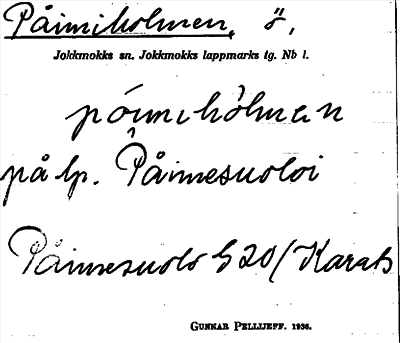 Påimiholmen, ö,
Jokkmokks sn. Jokkmokks lappmarks tg. Nb l.
póimiholman
på lp. Påimesuoloi
Påimesuolo G20/Karats
GUNNAR PELLIJEFF. 1936.